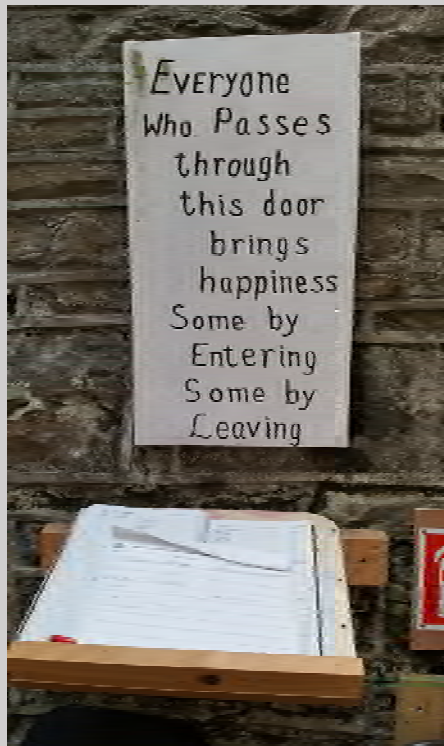 Everyone
Who Passes
through
this door
brings
happiness
Some by
Entering
Some by
Leaving